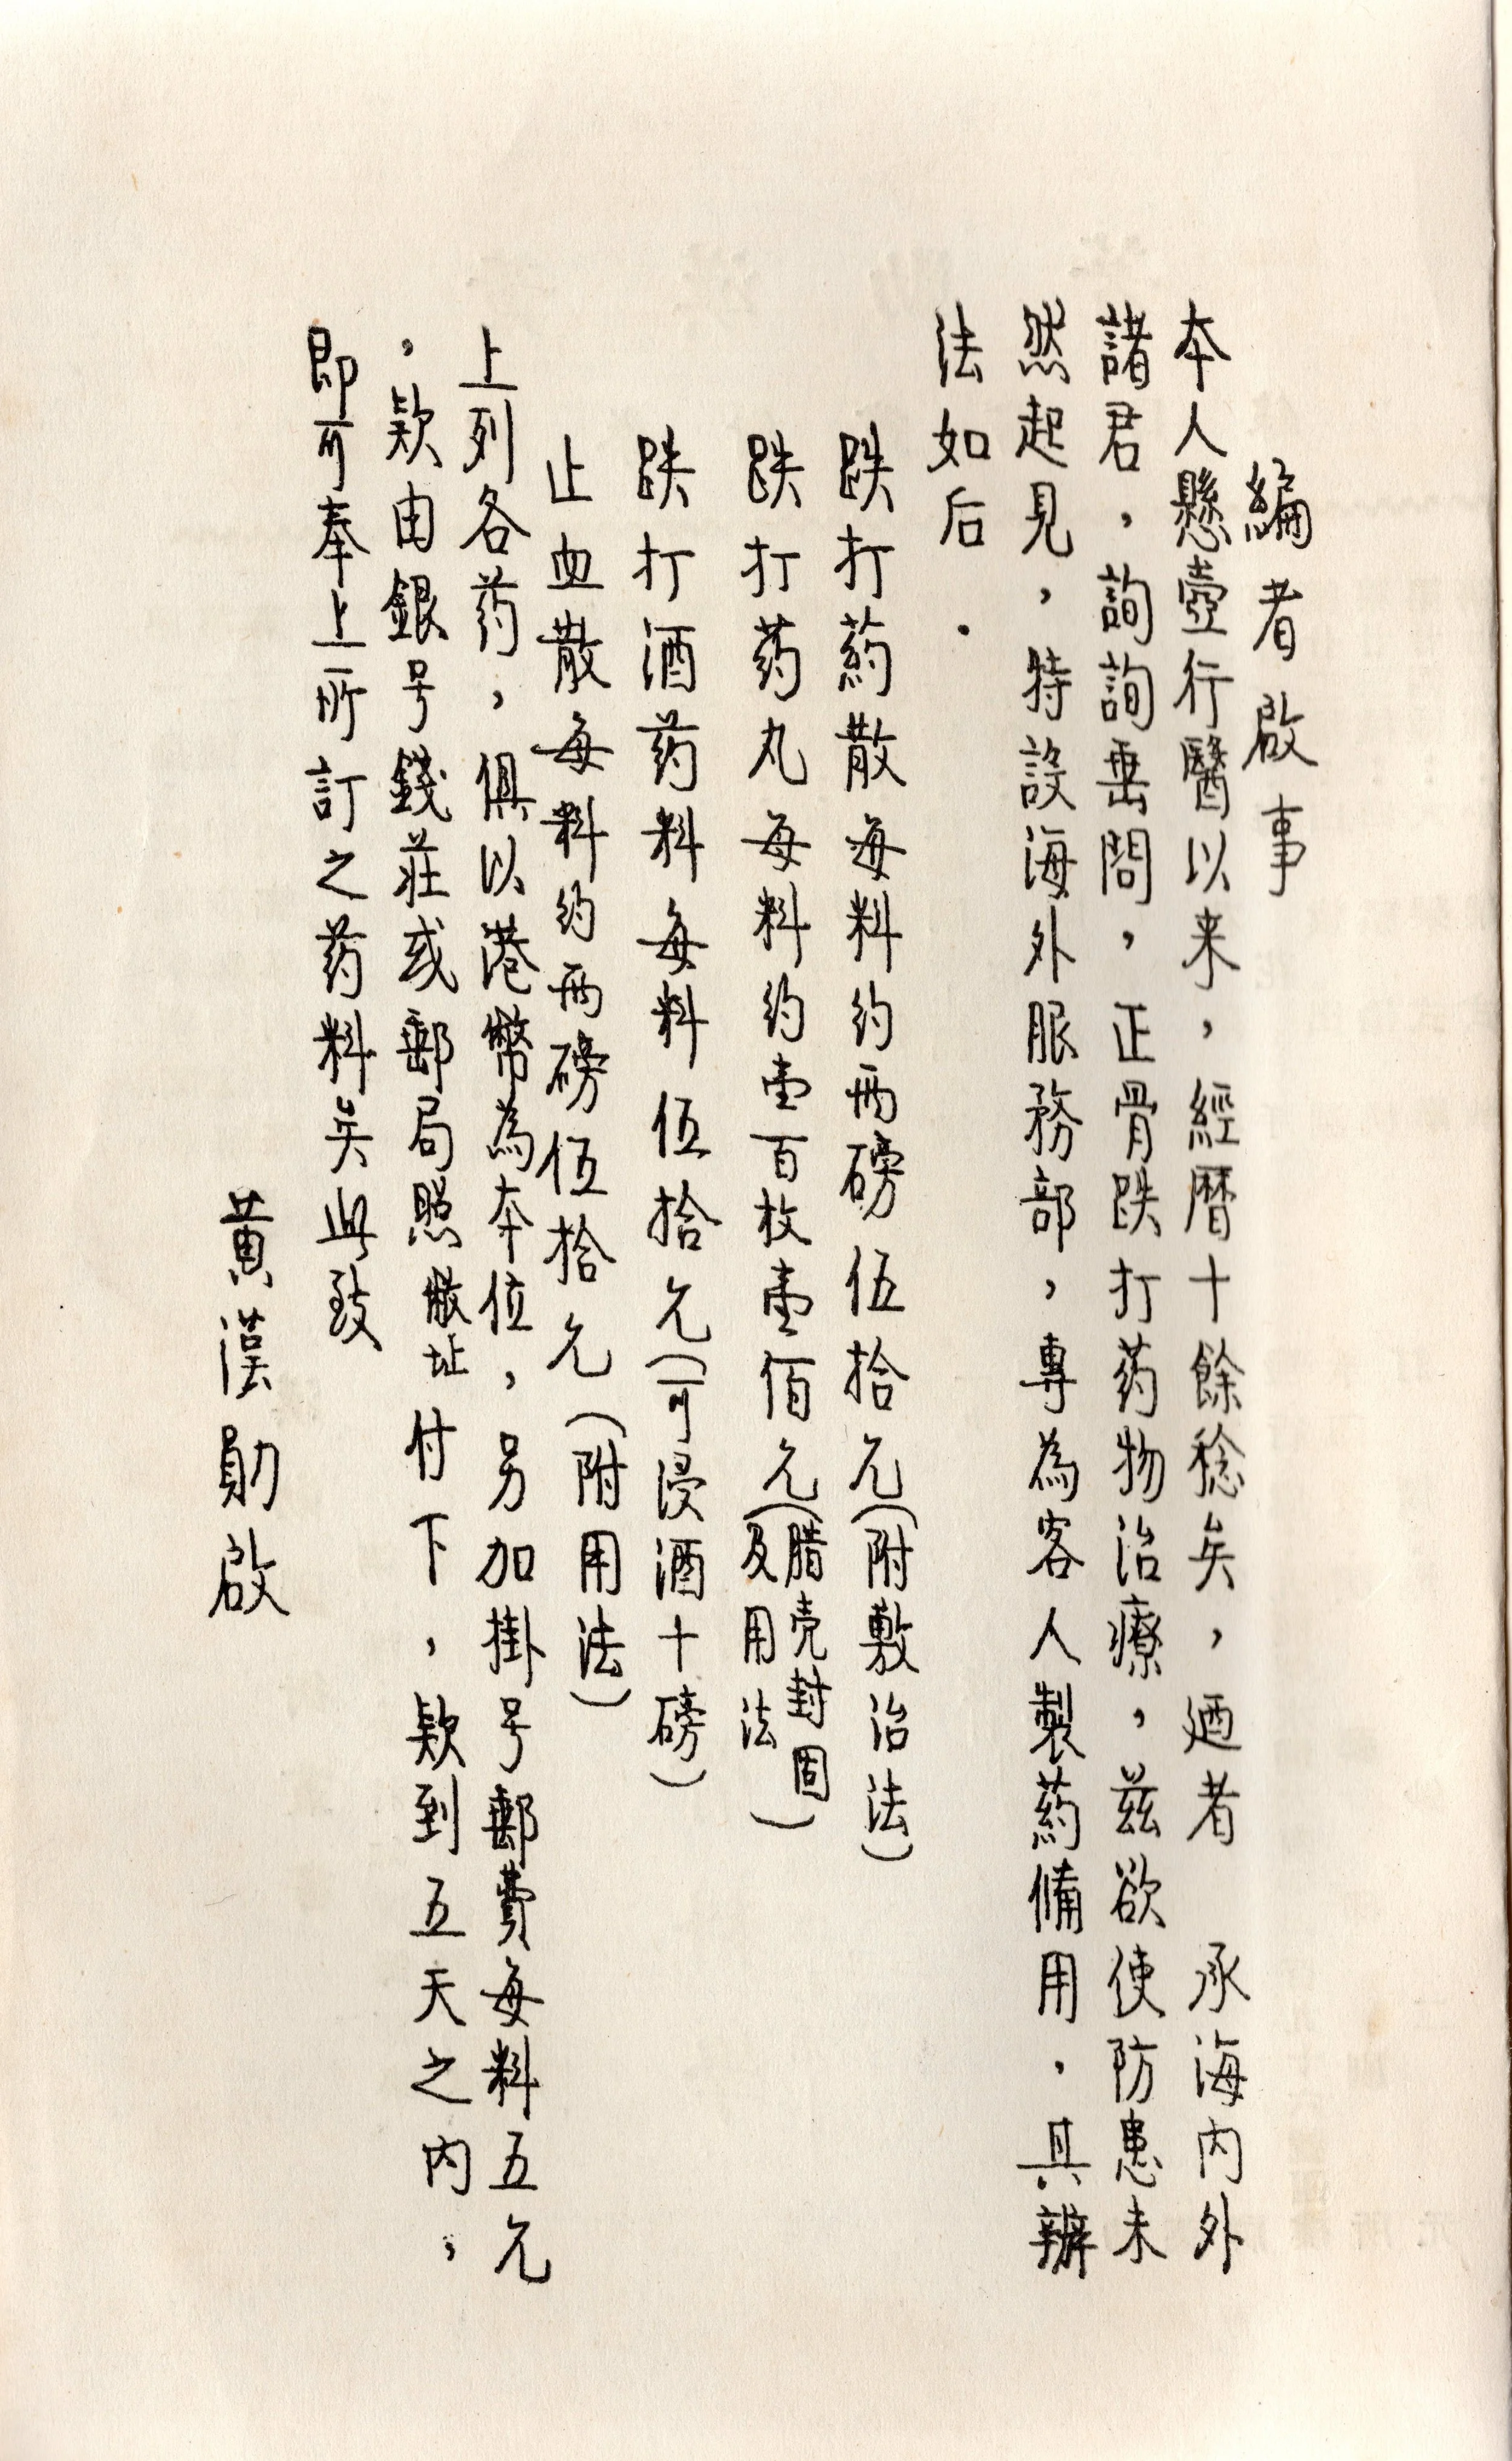 編者啟事
本人懸壺行醫以来，經曆十餘稔矣，廼者　承海内外
諸君，詢詢垂問，正骨跌打药物治療，兹欲使防患未
然起見，特設海外服務部，專為客人製葯俻用．具辦
法如后．
跌打葯散每料约两磅伍拾元（附敷治法）
跌打药丸每料约壹百枚壹佰元（腊壳封固及用法）
跌打酒药料每料伍拾元（可浸酒十磅）
止血散每料约两磅伍拾元（附用法）
上列各药，俱以港幣為本位，另加掛号郵費每料五元
，欵由銀号錢莊或郵局照敝址付下，欵到五天之内，
即可奉上所訂之药料矣此致
黄漢勛啟